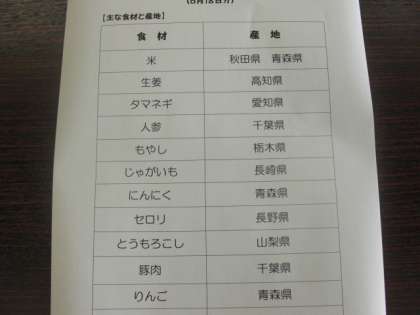 (6月18日分)
【主な食材と産地】
食 材 産 地
米 秋田県 青森県
生姜 高知県
タマネギ 愛知県
人参 千葉県
もやし 栃木県
じゃがいも 長崎県
にんにく 青森県
セロリ 長野県
とうもろこし 山梨県
豚肉 千葉県
りんご 青森県